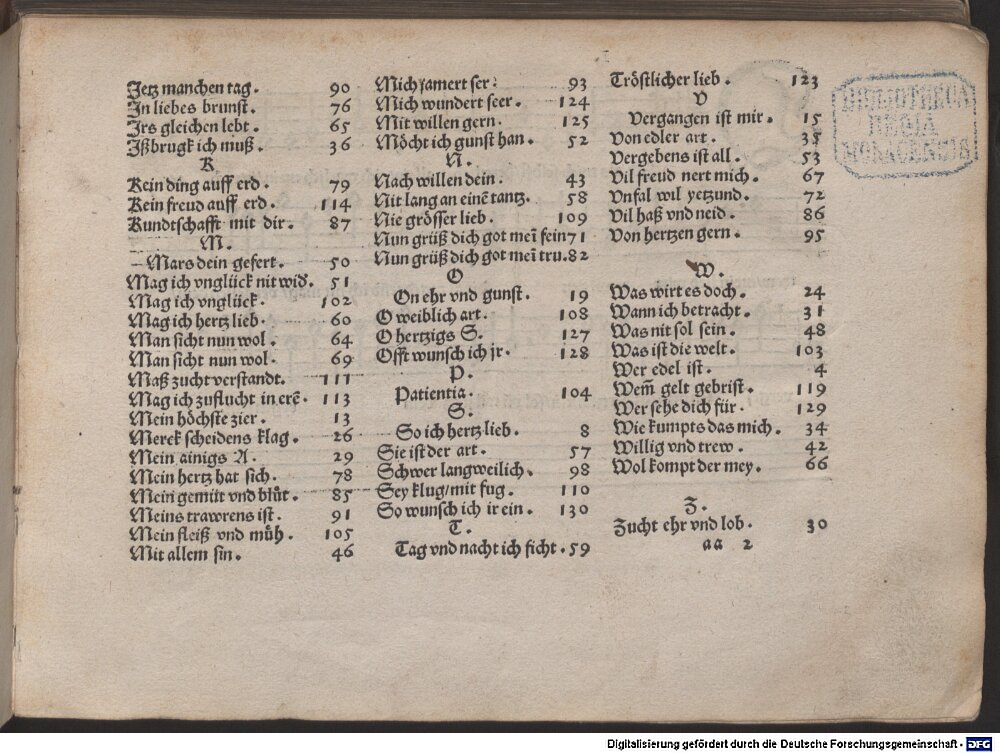 Jetz manchen tag. 90
In liebes brunst. 76
Irs gleichen lebt. 65
Ißbrugk ich muß. 36
K
Kein ding auff erd. 79
Kein freud auff erd. 114
Kundtschafft mit dir. 87
M.
Mars dein gefert. 50
Mag ich vnglück nit wid. 51
Mag ich vnglück. 102
Mag ich hertz lieb. 60
Man sicht nun wol. 64
Man sicht nun wol. 69
Maß zucht verstandt. 111
Mag ich zuflucht in erē. 113
Mein höchste zier. 13
Merck scheidens klag. 26
Mein ainigs A. 29
Mein hertz hat sich. 78
Mein gemüt vnd blůt. 85
Meins trawrens ist. 91
Mein fleiß vnd můh. 105
Mit allem sin. 46
Mich jamert ser. 93
Mich wundert seer. 124
Mit willen gern. 125
Möcht ich gunst han. 52
N.
Nach willen dein. 43
Nit lang an einē tantz. 58
Nie grösser lieb. 109
Nun grüß dich got mei᷑ fein 71
Nun grüß dich got mei᷑ tru. 82
O
On ehr vnd gunst. 19
O weiblich art. 108
O hertzigs S. 127
Offt wunsch ich jr. 128
P.
Patientia. 104
S.
So ich hertz lieb. 8
Sie ist der art. 57
Schwer langweilich. 98
Sey klug/mit fug. 110
So wunsch ich ir ein. 130
T.
Tag vnd nacht ich ficht. 59
Tröstlicher lieb. 123
V
Vergangen ist mir. 15
Von edler art. 35
Vergebens ist all. 53
Vil freud nert mich. 67
Vnfal wil yetzund. 72
Vil haß vnd neid. 86
Von hertzen gern. 95
W.
Was wirt es doch. 24
Wann ich betracht. 31
Was nit sol sein. 48
Was ist die welt. 103
Wer edel ist. 4
Wem̄ gelt gebrist. 119
Wer sehe dich für. 129
Wie kumpts das mich. 34
Willig vnd trew. 42
Wol kompt der mey. 66
Z.
Zucht ehr vnd lob. 30
aa 2
BIBLIOTHECA
REGIA
MONACENSIS
Digitalisierung gefördert durch die Deutsche Forschungsgemeinschaft - DFG